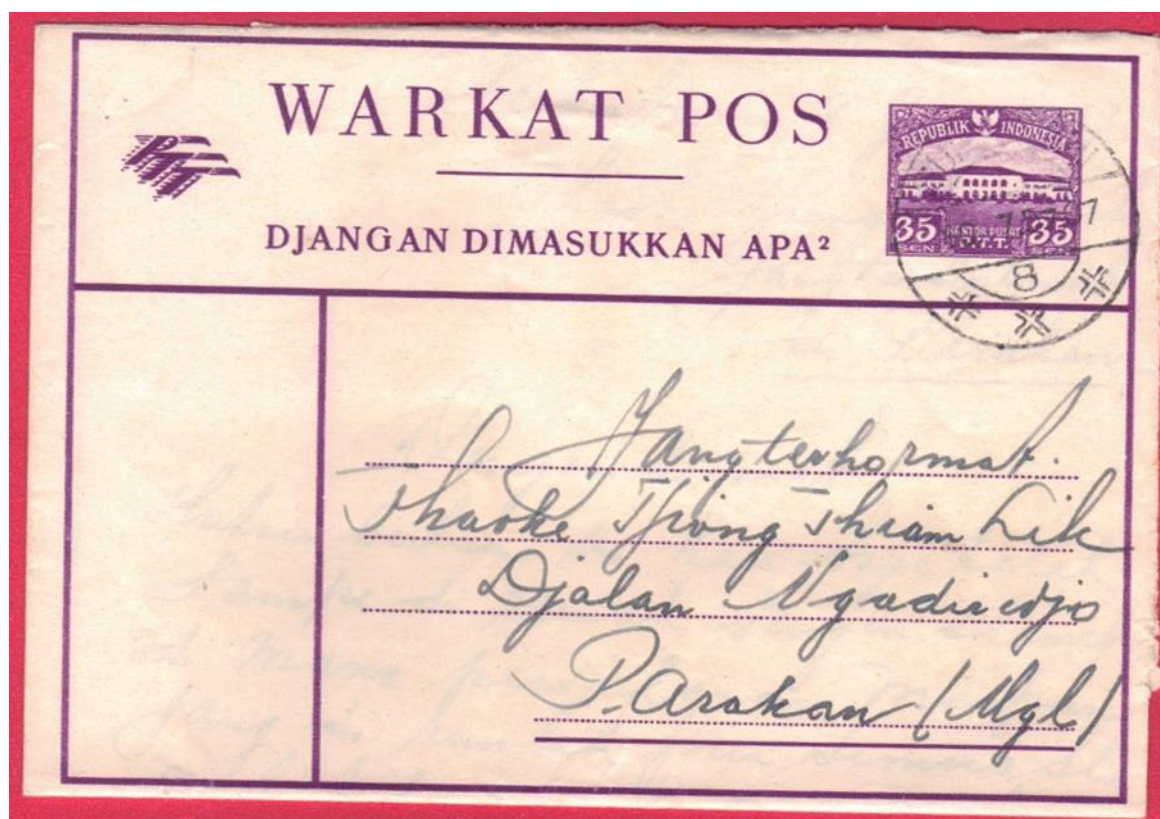 WARKAT POS
PTT
DJANGAN DIMASUKKAN APA²
REPUBLIK INDONESIA
35 SEN KANTOR PUSAT P.T.T. 35 SEN
8
Jang terhormat.
Thaoke Tjiong Thiam Lik
Djalan Ngadiredjo
P.Arakan (Mgl)